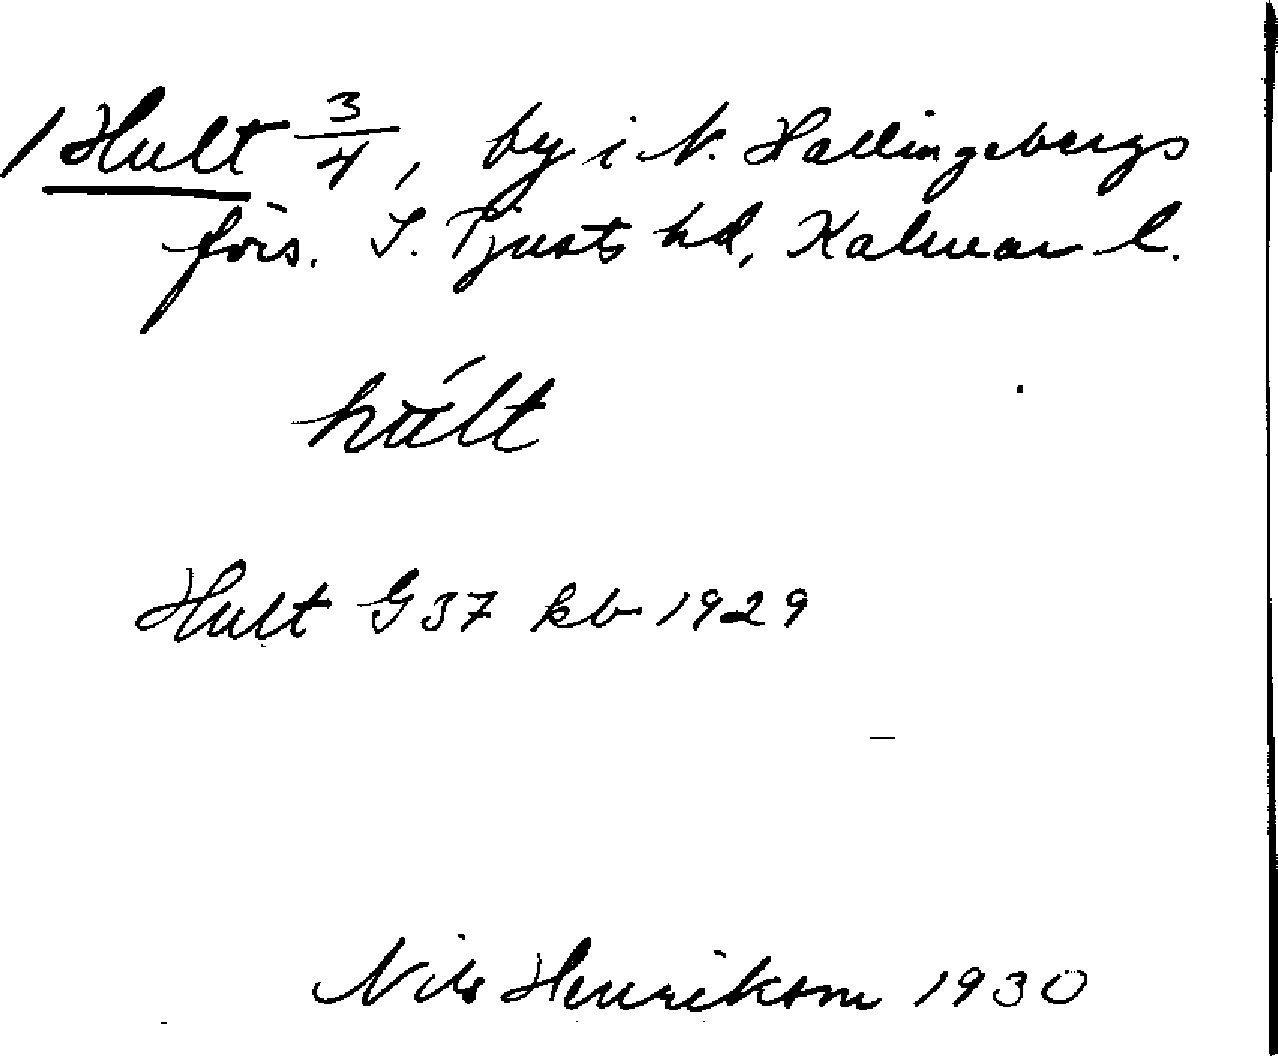 / Hult 3/4, by i N. Hallingebergs
förs. S. Tjusts hd, Kalmar l.
húlt
Hult G 37 kb 1929
Nils Henrikson 1930